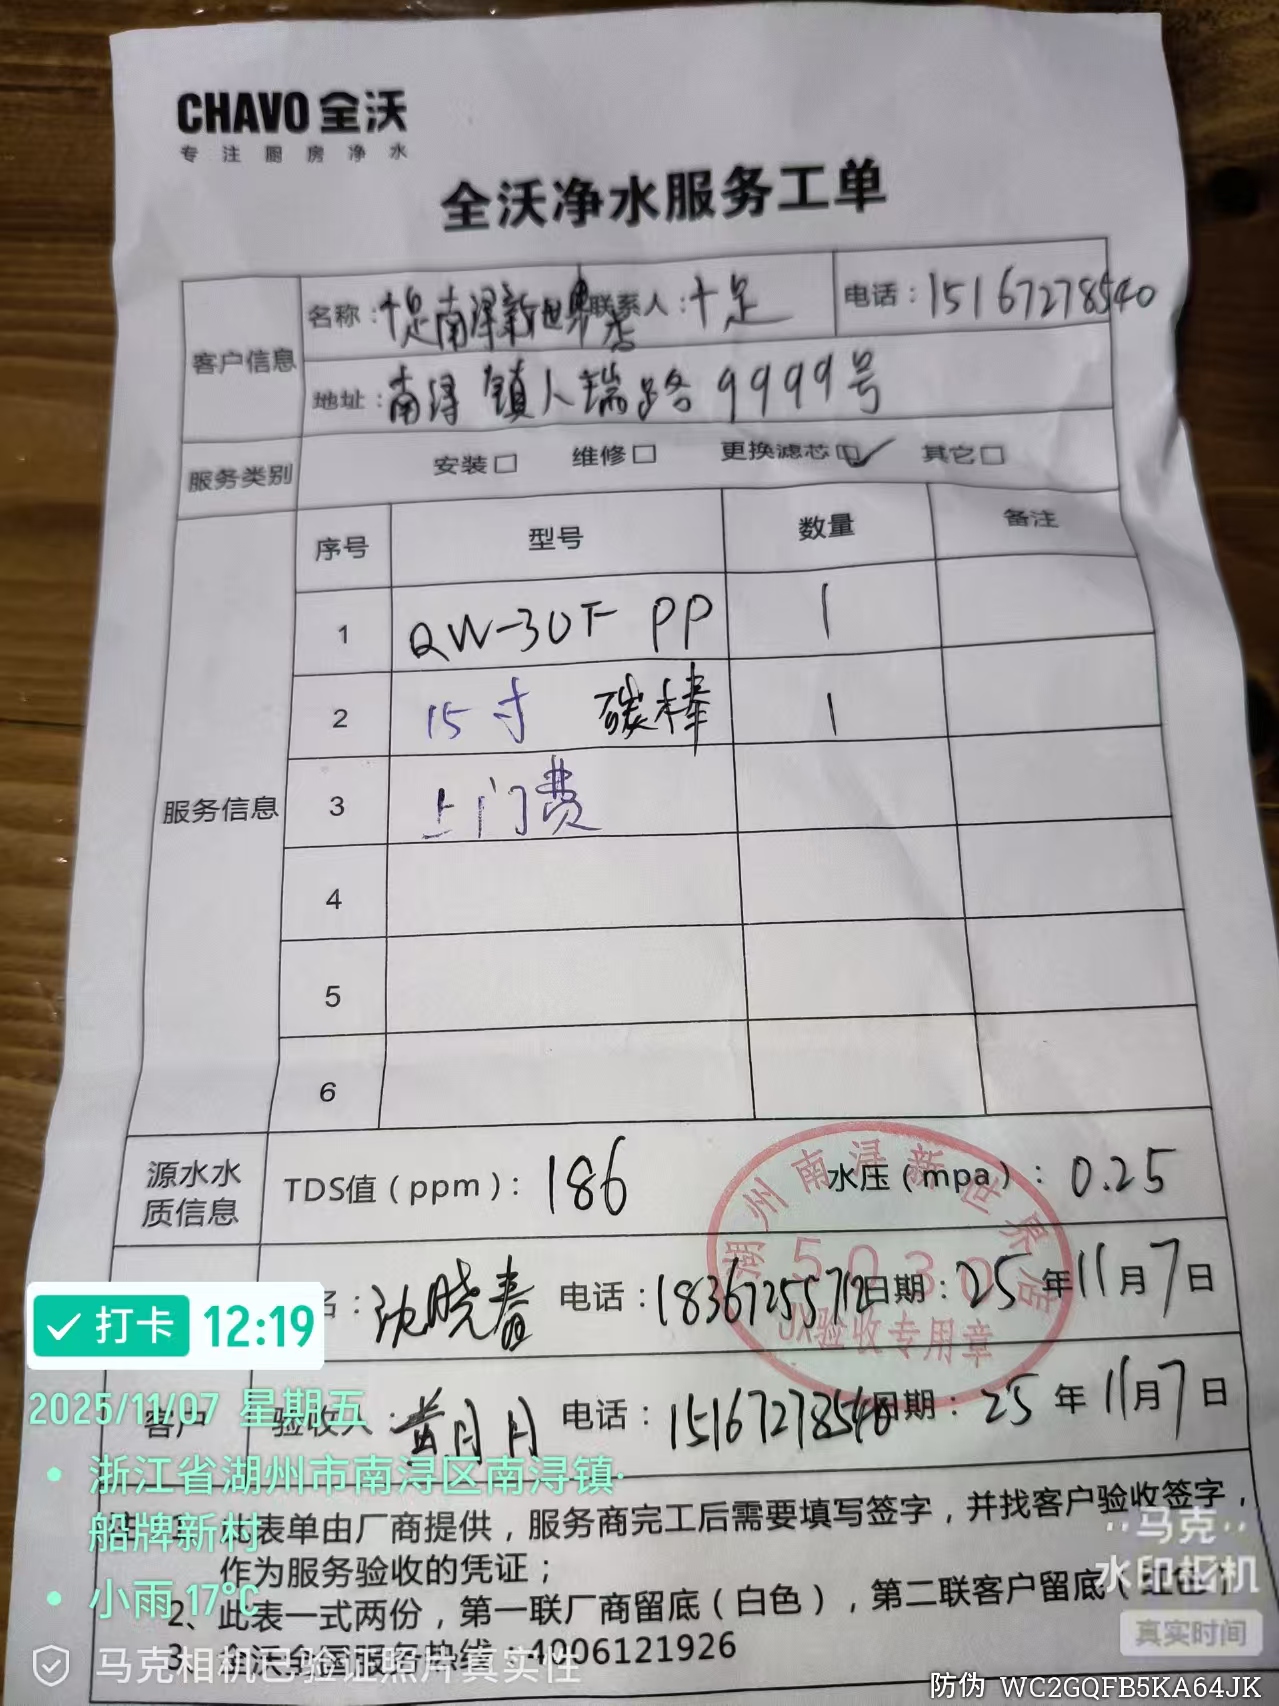 CHAVO 全沃
专注厨房净水
全沃净水服务工单
客户信息
名称：十足南浔新世界店 联系人：十足 电话：15167278540
地址：南浔镇人瑞路9999号
服务类别 安装□ 维修□ 更换滤芯☑ 其它□
服务信息
序号 型号 数量 备注
1 QW-30F PP 1
2 15寸 碳棒 1
3 上门费
4
5
6
源水水质信息 TDS值（ppm）：186 水压（mpa）：0.25
湖州南浔新世界店
5030
JX验收专用章
名：沈晓春 电话：18367255712 日期：25年11月7日
客户 验收人：黄月月 电话：15167278540 日期：25年11月7日
此表单由厂商提供，服务商完工后需要填写签字，并找客户验收签字，
作为服务验收的凭证；
2、此表一式两份，第一联厂商留底（白色），第二联客户留底（红色）
3、全沃全国服务热线：4006121926
打卡 12:19
2025/11/07 星期五
浙江省湖州市南浔区南浔镇·
船牌新村
小雨 17°C
马克相机已验证照片真实性
马克
水印相机
真实时间
防伪 WC2GQFB5KA64JK